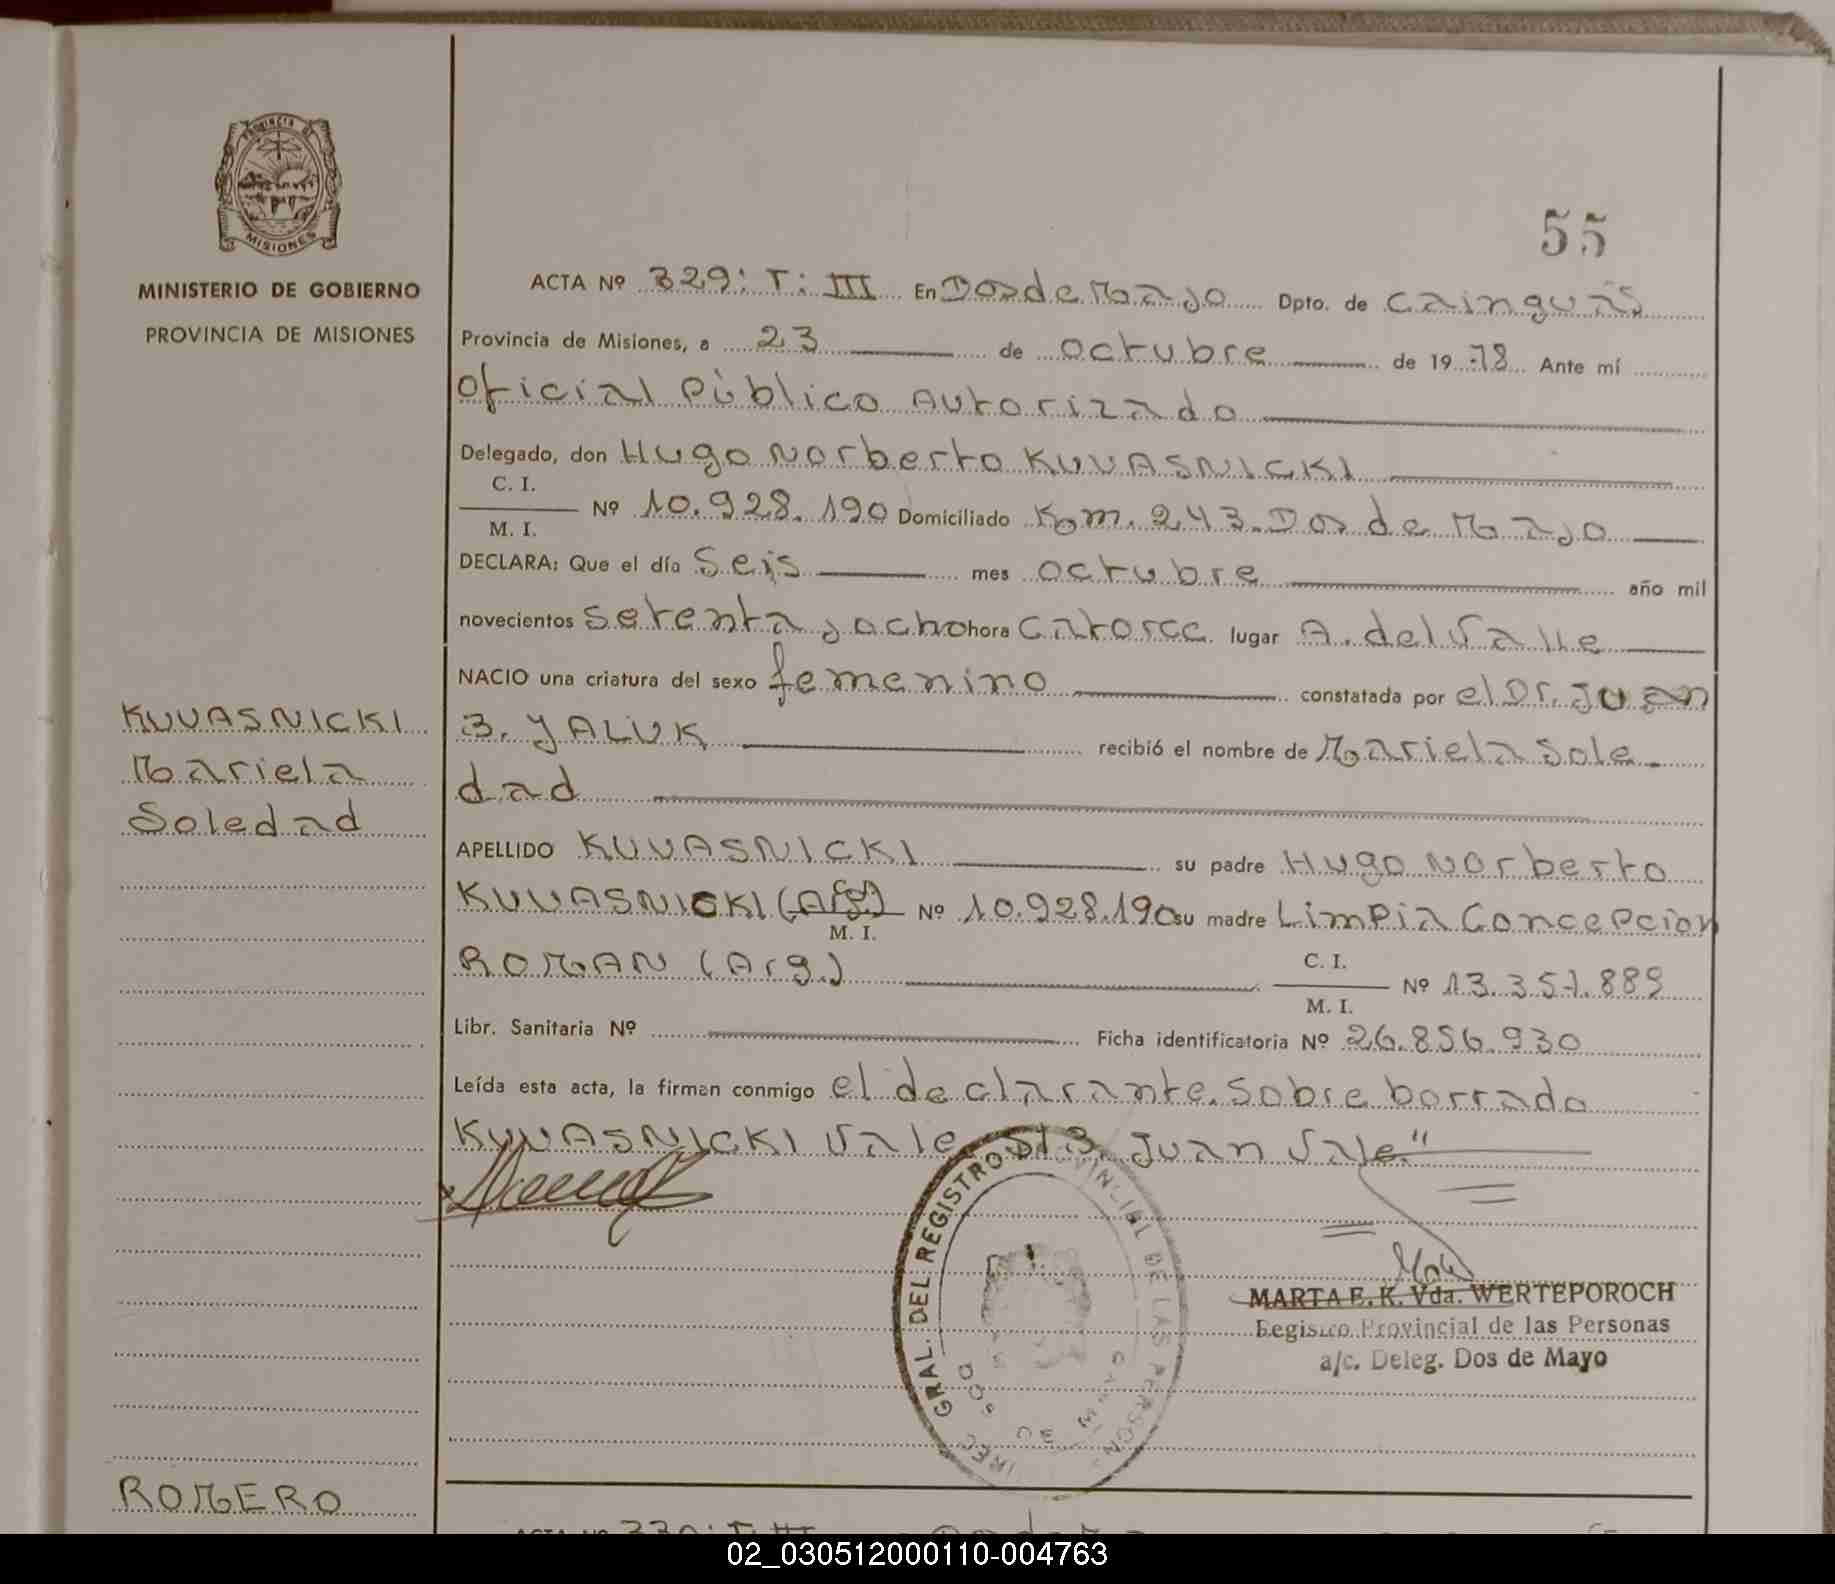 PROVINCIA DE
MISIONES
MINISTERIO DE GOBIERNO
PROVINCIA DE MISIONES
55
ACTA Nº 329: T: III En Dos de Mayo Dpto. de Cainguás
Provincia de Misiones, a 23 de octubre de 19 78 Ante mí
Oficial Público Autorizado
Delegado, don Hugo Norberto KUVASNICKI
C. I.
M. I.
Nº 10.928.190 Domiciliado Kom. 243. Dos de Mayo
DECLARA: Que el día Seis mes octubre año mil
novecientos Setenta yocho hora catorce lugar A. del Valle
NACIO una criatura del sexo femenino constatada por el Dr. Juan
3. YALUK recibió el nombre de Mariela Sole-
dad
KUVASNICKI
Mariela
Soledad
APELLIDO KUVASNICKI su padre Hugo Norberto
KUVASNICKI (Arg.) M. I. Nº 10.928.190 su madre Limpia Concepcion
ROMAN (Arg.) C. I. M. I. Nº 13.357.889
Libr. Sanitaria Nº Ficha identificatoria Nº 26.856.930
Leída esta acta, la firman conmigo el declarante. Sobre borrado
KUVASNICKI Vale S/B. Juan Vale"
GRAL. DEL REGISTRO PROVINCIAL DE LAS PERSON
MARTA E. K. Vda. WERTEPOROCH
Registro Provincial de las Personas
a/c. Deleg. Dos de Mayo
ROMERO
ACTA Nº 330: T: III
02_030512000110-004763